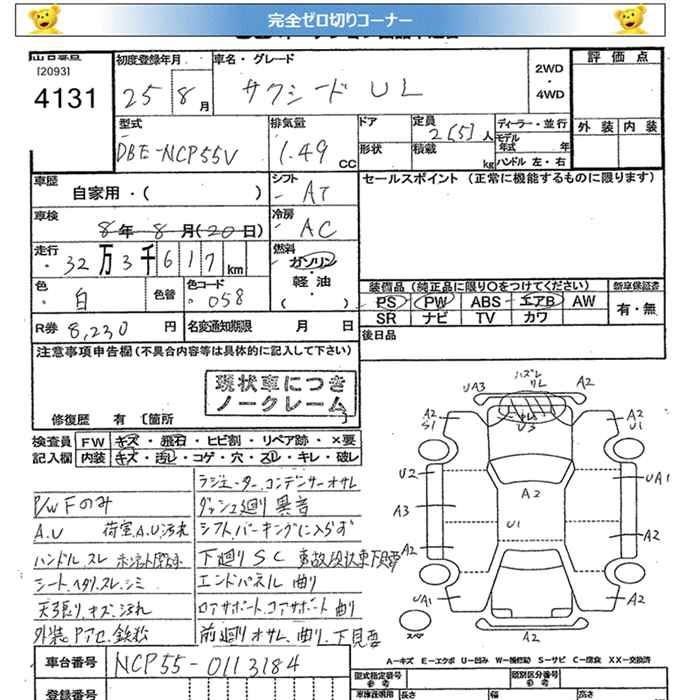 完全ゼロ切りコーナー
[2093]
4131
初度登録年月
25 8月
車名・グレード
サクシード UL
2WD
・
4WD
評価点
外装 内装
型式
DBE-NCP55V
排気量
1.49 CC
ドア
形状
定員 2[5]人
積載 kg
ディーラー・並行
モデル年式 年
ハンドル 左・右
車歴
自家用・( )
シフト
AT
セールスポイント (正常に機能するものに限ります)
車検
8年 8月(20日)
冷房
AC
走行
32万3千617km
燃料
ガソリン
軽油
( )
色
白
色替
色コード
058
装備品 (純正品に限り○をつけてください)
PS PW ABS エアB AW
SR ナビ TV カワ
新車保証書
有・無
R券 8,230 円
名変通知期限 月 日
後日品
注意事項申告欄 (不具合内容等は具体的に記入して下さい)
現状車につき
ノークレーム
修復歴 有 [箇所 ]
検査員
記入欄
FW キズ・飛石・ヒビ割・リペア跡・×要
内装 キズ・汚レ・コゲ・穴・スレ・キレ・破レ
P/W Fのみ
A.U 荷室.A.U汚れ
ハンドル スレ
シート.ヘタリ.スレ.シミ
天張り.キズ.汚れ
ラジエーター.コンデンサーオサレ
ダッシュ廻り 異音
シフトパーキングに入らず
下廻り SC
エンドパネル 曲り
コアサポート 曲り
前廻りオサレ、曲り、下見要
UA3 ハズレ リレ A2
A2 S1 U3 A2 U1
U2 A2 UA1
A3 U1
A2 A2
UA1 A2 A2
スペア
車台番号 NCP55-0113184
登録番号
A-キズ E-エクボ U-凹み W-補修跡 S-サビ C-腐食 XX-交換済
型式指定番号 参考
類別区分番号 参考
長さ 幅 高さ